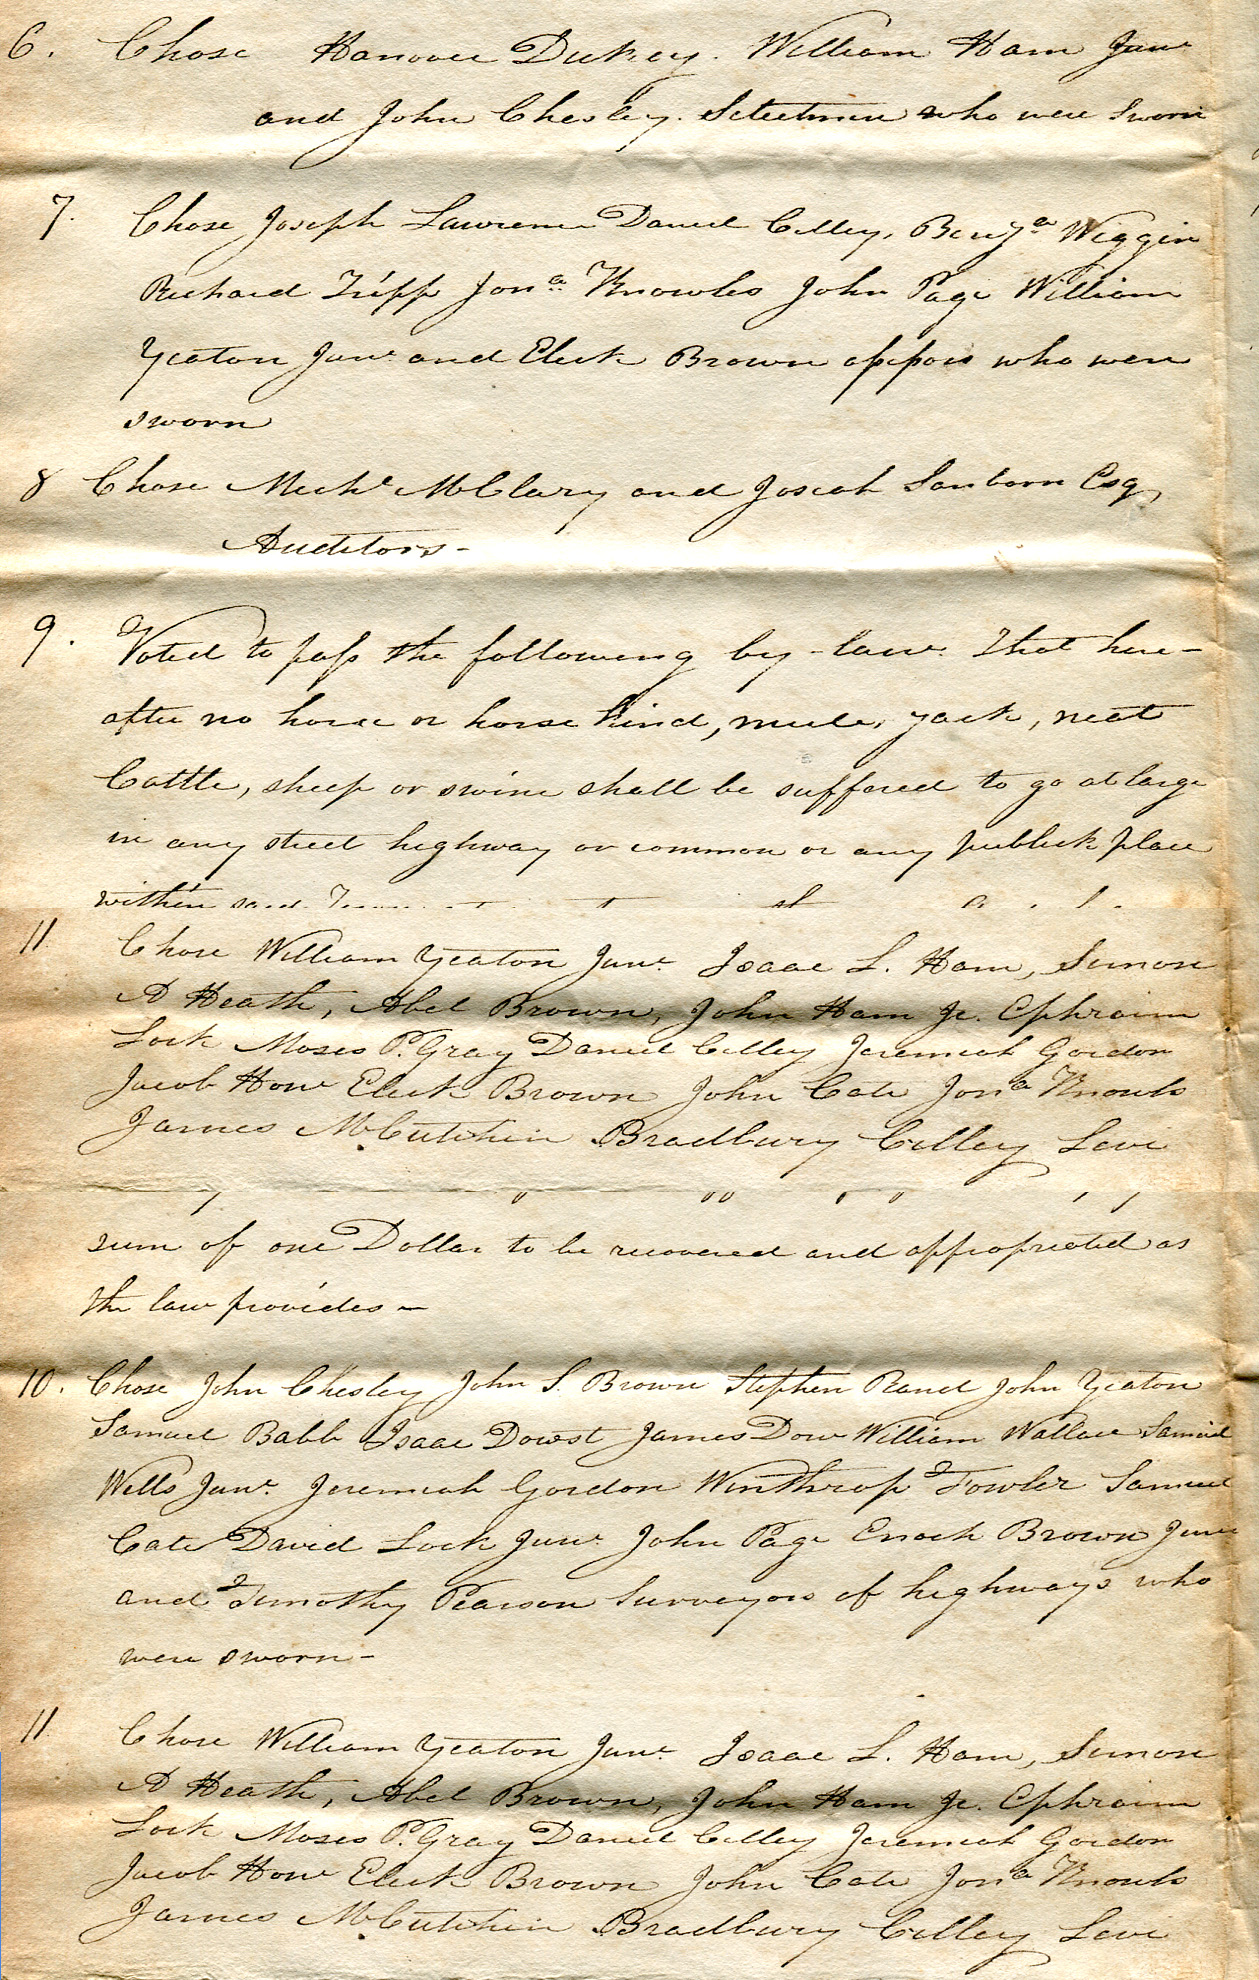 6. Chose Hanover Dickey. William Ham Junr
and John Chesley. Selectmen who were Sworn
7. Chose Joseph Lawrence Daniel Cilley, Benja Wiggin
Richard Tripp Jona Knowles John Page William
Yeaton Junr and Eleck Brown assors who were
sworn
8 Chose Michl McClary and Josiah Sanborn Esq
Auditors-
9. Voted to pass the following by-law. That here-
after no horse or horse kind, mule, jack, neat
Cattle, sheep or swine shall be suffered to go at large
in any street highway or common or any publick place
within said Town
11 Chose William Yeaton Junr Isaac L. Ham, Simon
A Heath, Abel Brown, John Ham Jr. Ephraim
Lock Moses P. Gray Daniel Cilley Jeremiah Gordon
Jacob How Eleck Brown John Cate Jona Knowls
James McCutchin Bradbury Cilley Levi
sum of one Dollar to be recovered and appropriated as
the law provides-
10. Chose John Chesley John S. Brown Stephen Rand John Yeaton
Samuel Babb Isaac Dowst James Dow William Wallace Samuel
Wells Junr. Jeremiah Gordon Winthrop Fowler Samuel
Cate David Lock Junr John Page Enoch Brown Junr
and Timothy Pearson Surveyors of highways who
were sworn-
11 Chose William Yeaton Junr Isaac L. Ham, Simon
A Heath, Abel Brown, John Ham Jr. Ephraim
Lock Moses P. Gray Daniel Cilley Jeremiah Gordon
Jacob How Eleck Brown John Cate Jona Knowls
James McCutchin Bradbury Cilley Levi